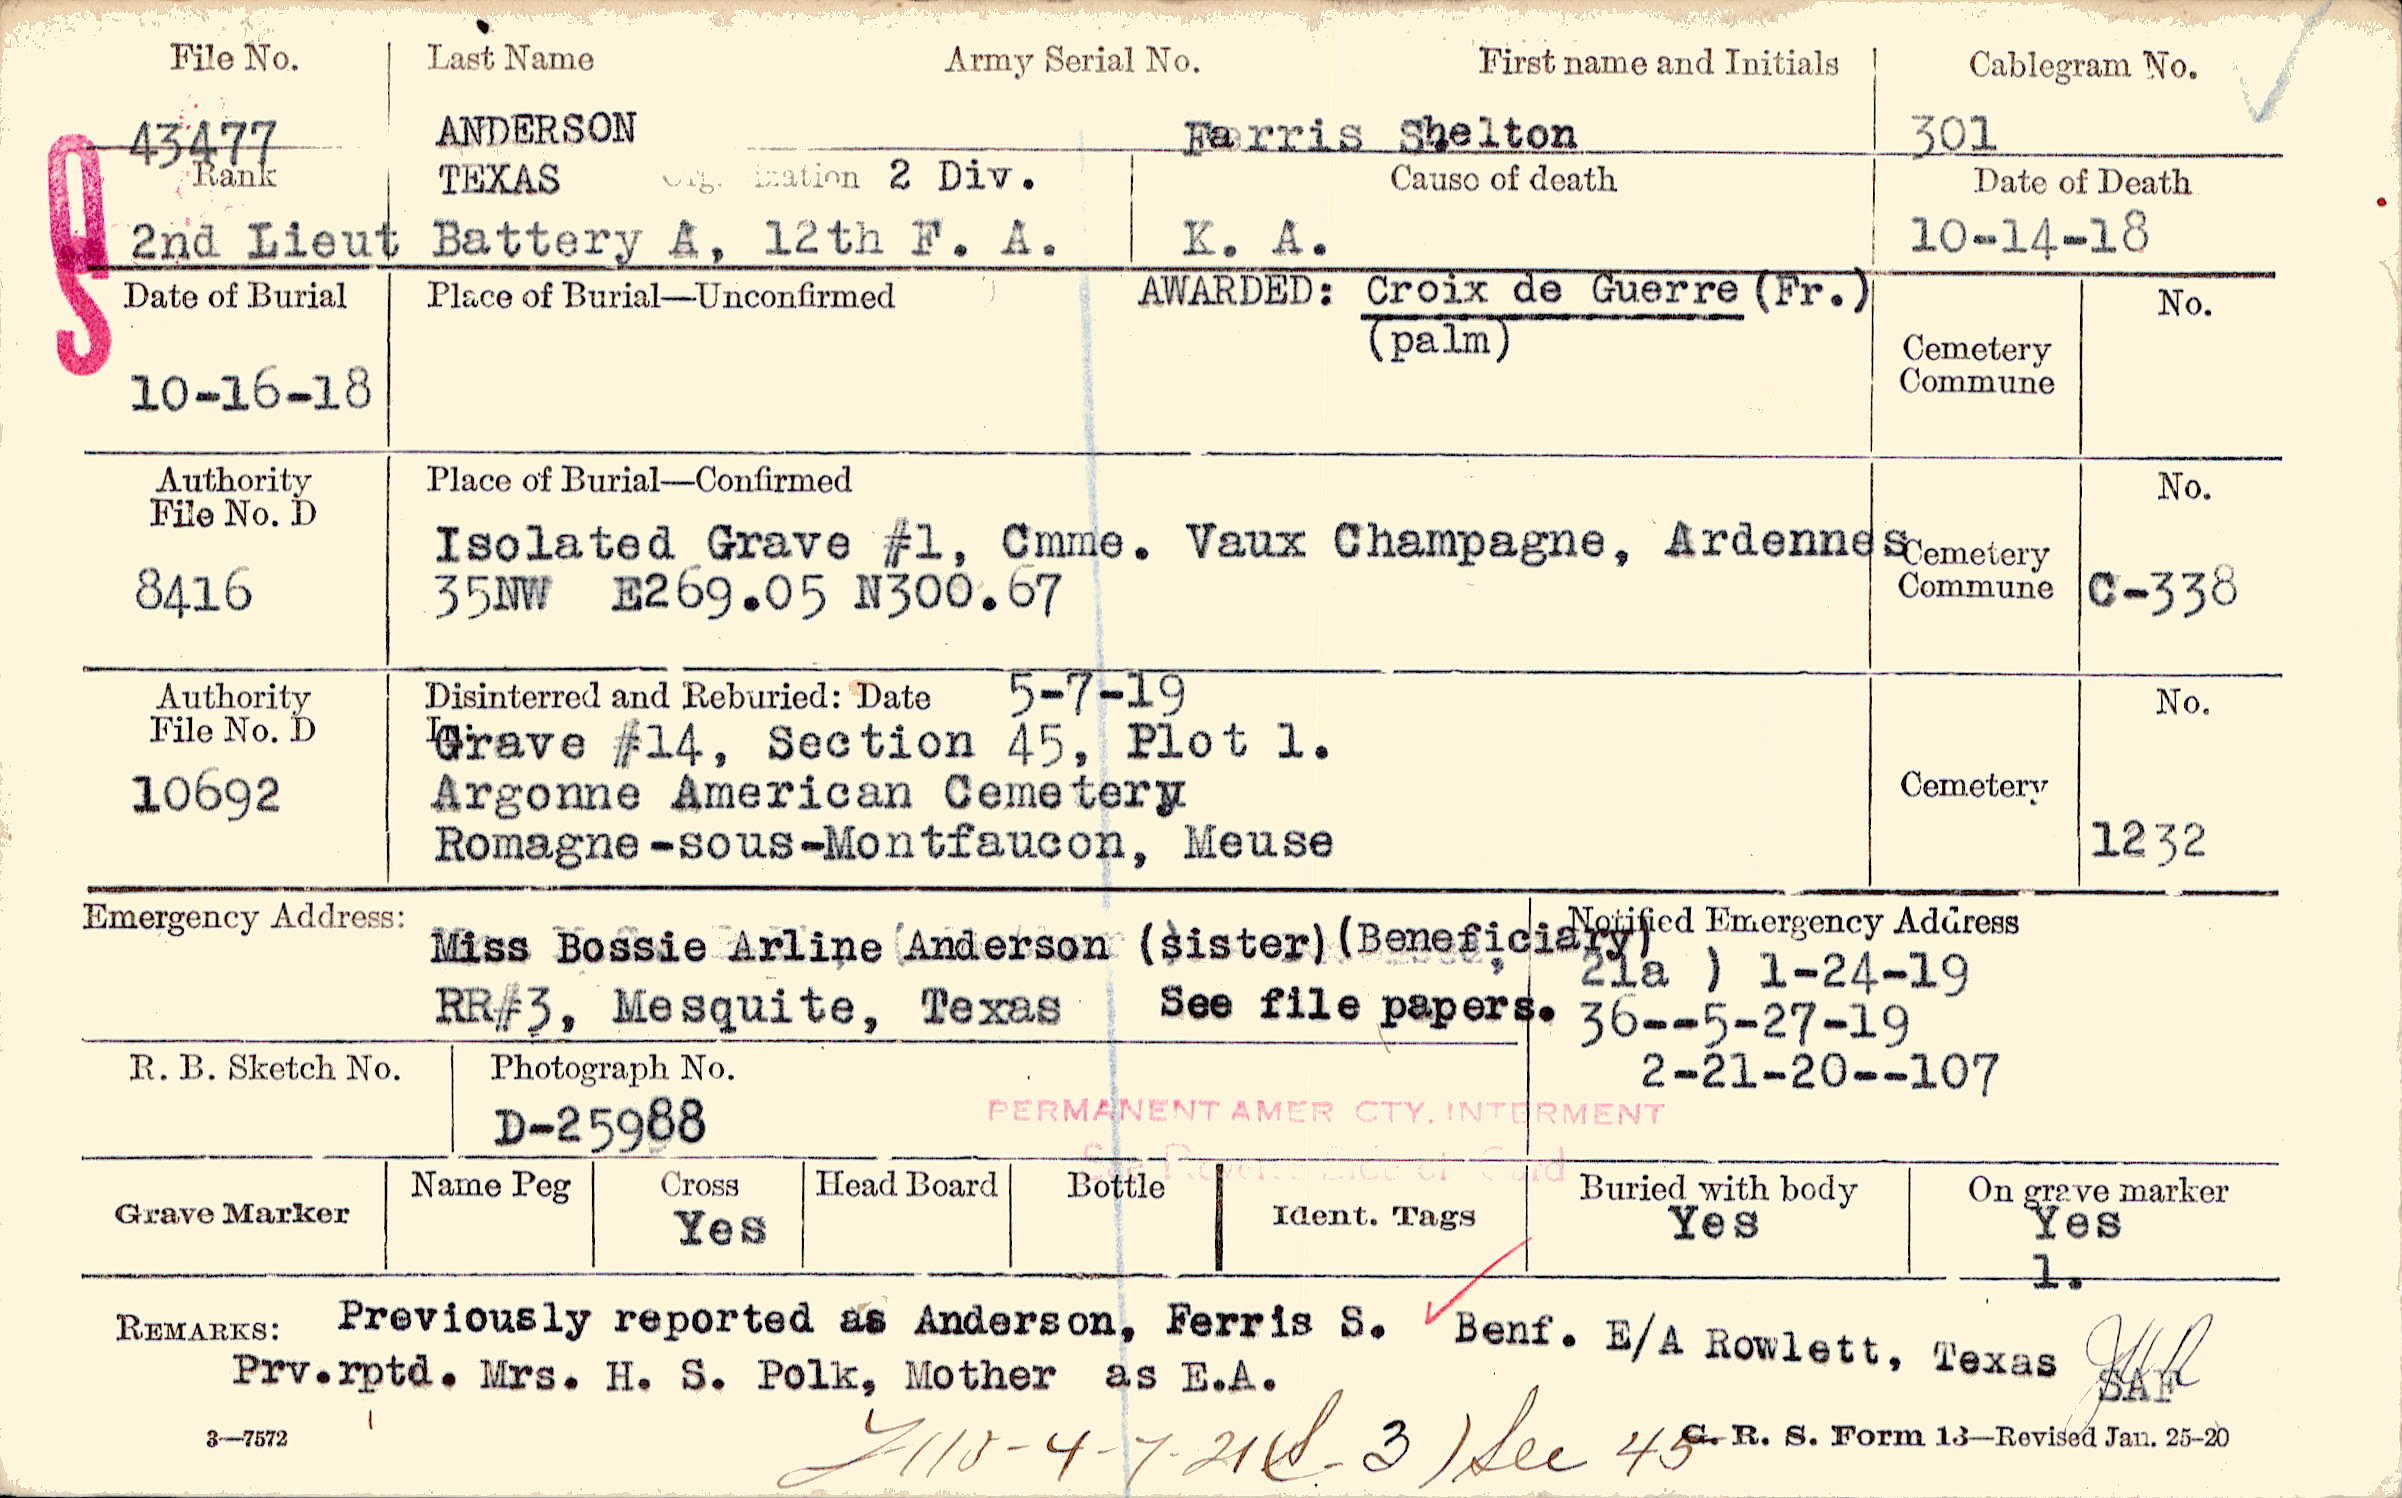 File No. Last Name Army Serial No. First name and Initials Cablegram No.
43477 ANDERSON Farris Shelton 301
Rank TEXAS Organization 2 Div. Cause of death Date of Death
2nd Lieut Battery A, 12th F. A. K. A. 10-14-18
Date of Burial Place of Burial—Unconfirmed AWARDED: Croix de Guerre (Fr.) No.
(palm)
Cemetery
Commune
10-16-18
Authority Place of Burial—Confirmed No.
File No. D
Isolated Grave #1, Cmme. Vaux Champagne, Ardennes Cemetery
8416 35NW E269.05 N300.67 Commune C-338
Authority Disinterred and Reburied: Date 5-7-19 No.
File No. D Grave #14, Section 45, Plot 1.
10692 Argonne American Cemetery Cemetery
Romagne-sous-Montfaucon, Meuse 1232
Emergency Address: Notified Emergency Address
Miss Bossie Arline Anderson (sister)(Beneficiary) 21a ) 1-24-19
RR#3, Mesquite, Texas See file papers. 36--5-27-19
R. B. Sketch No. Photograph No. 2-21-20--107
D-25988
PERMANENT AMER CTY. INTERMENT
See Reverse Side of Card
Grave Marker Name Peg Cross Head Board Bottle Ident. Tags Buried with body On grave marker
Yes Yes Yes
1.
REMARKS: Previously reported as Anderson, Ferris S. Benf. E/A Rowlett, Texas
Prv.rptd. Mrs. H. S. Polk, Mother as E.A. SAF
3—7572 G. R. S. Form 13—Revised Jan. 25-20
4-7-21 3) Sec 45